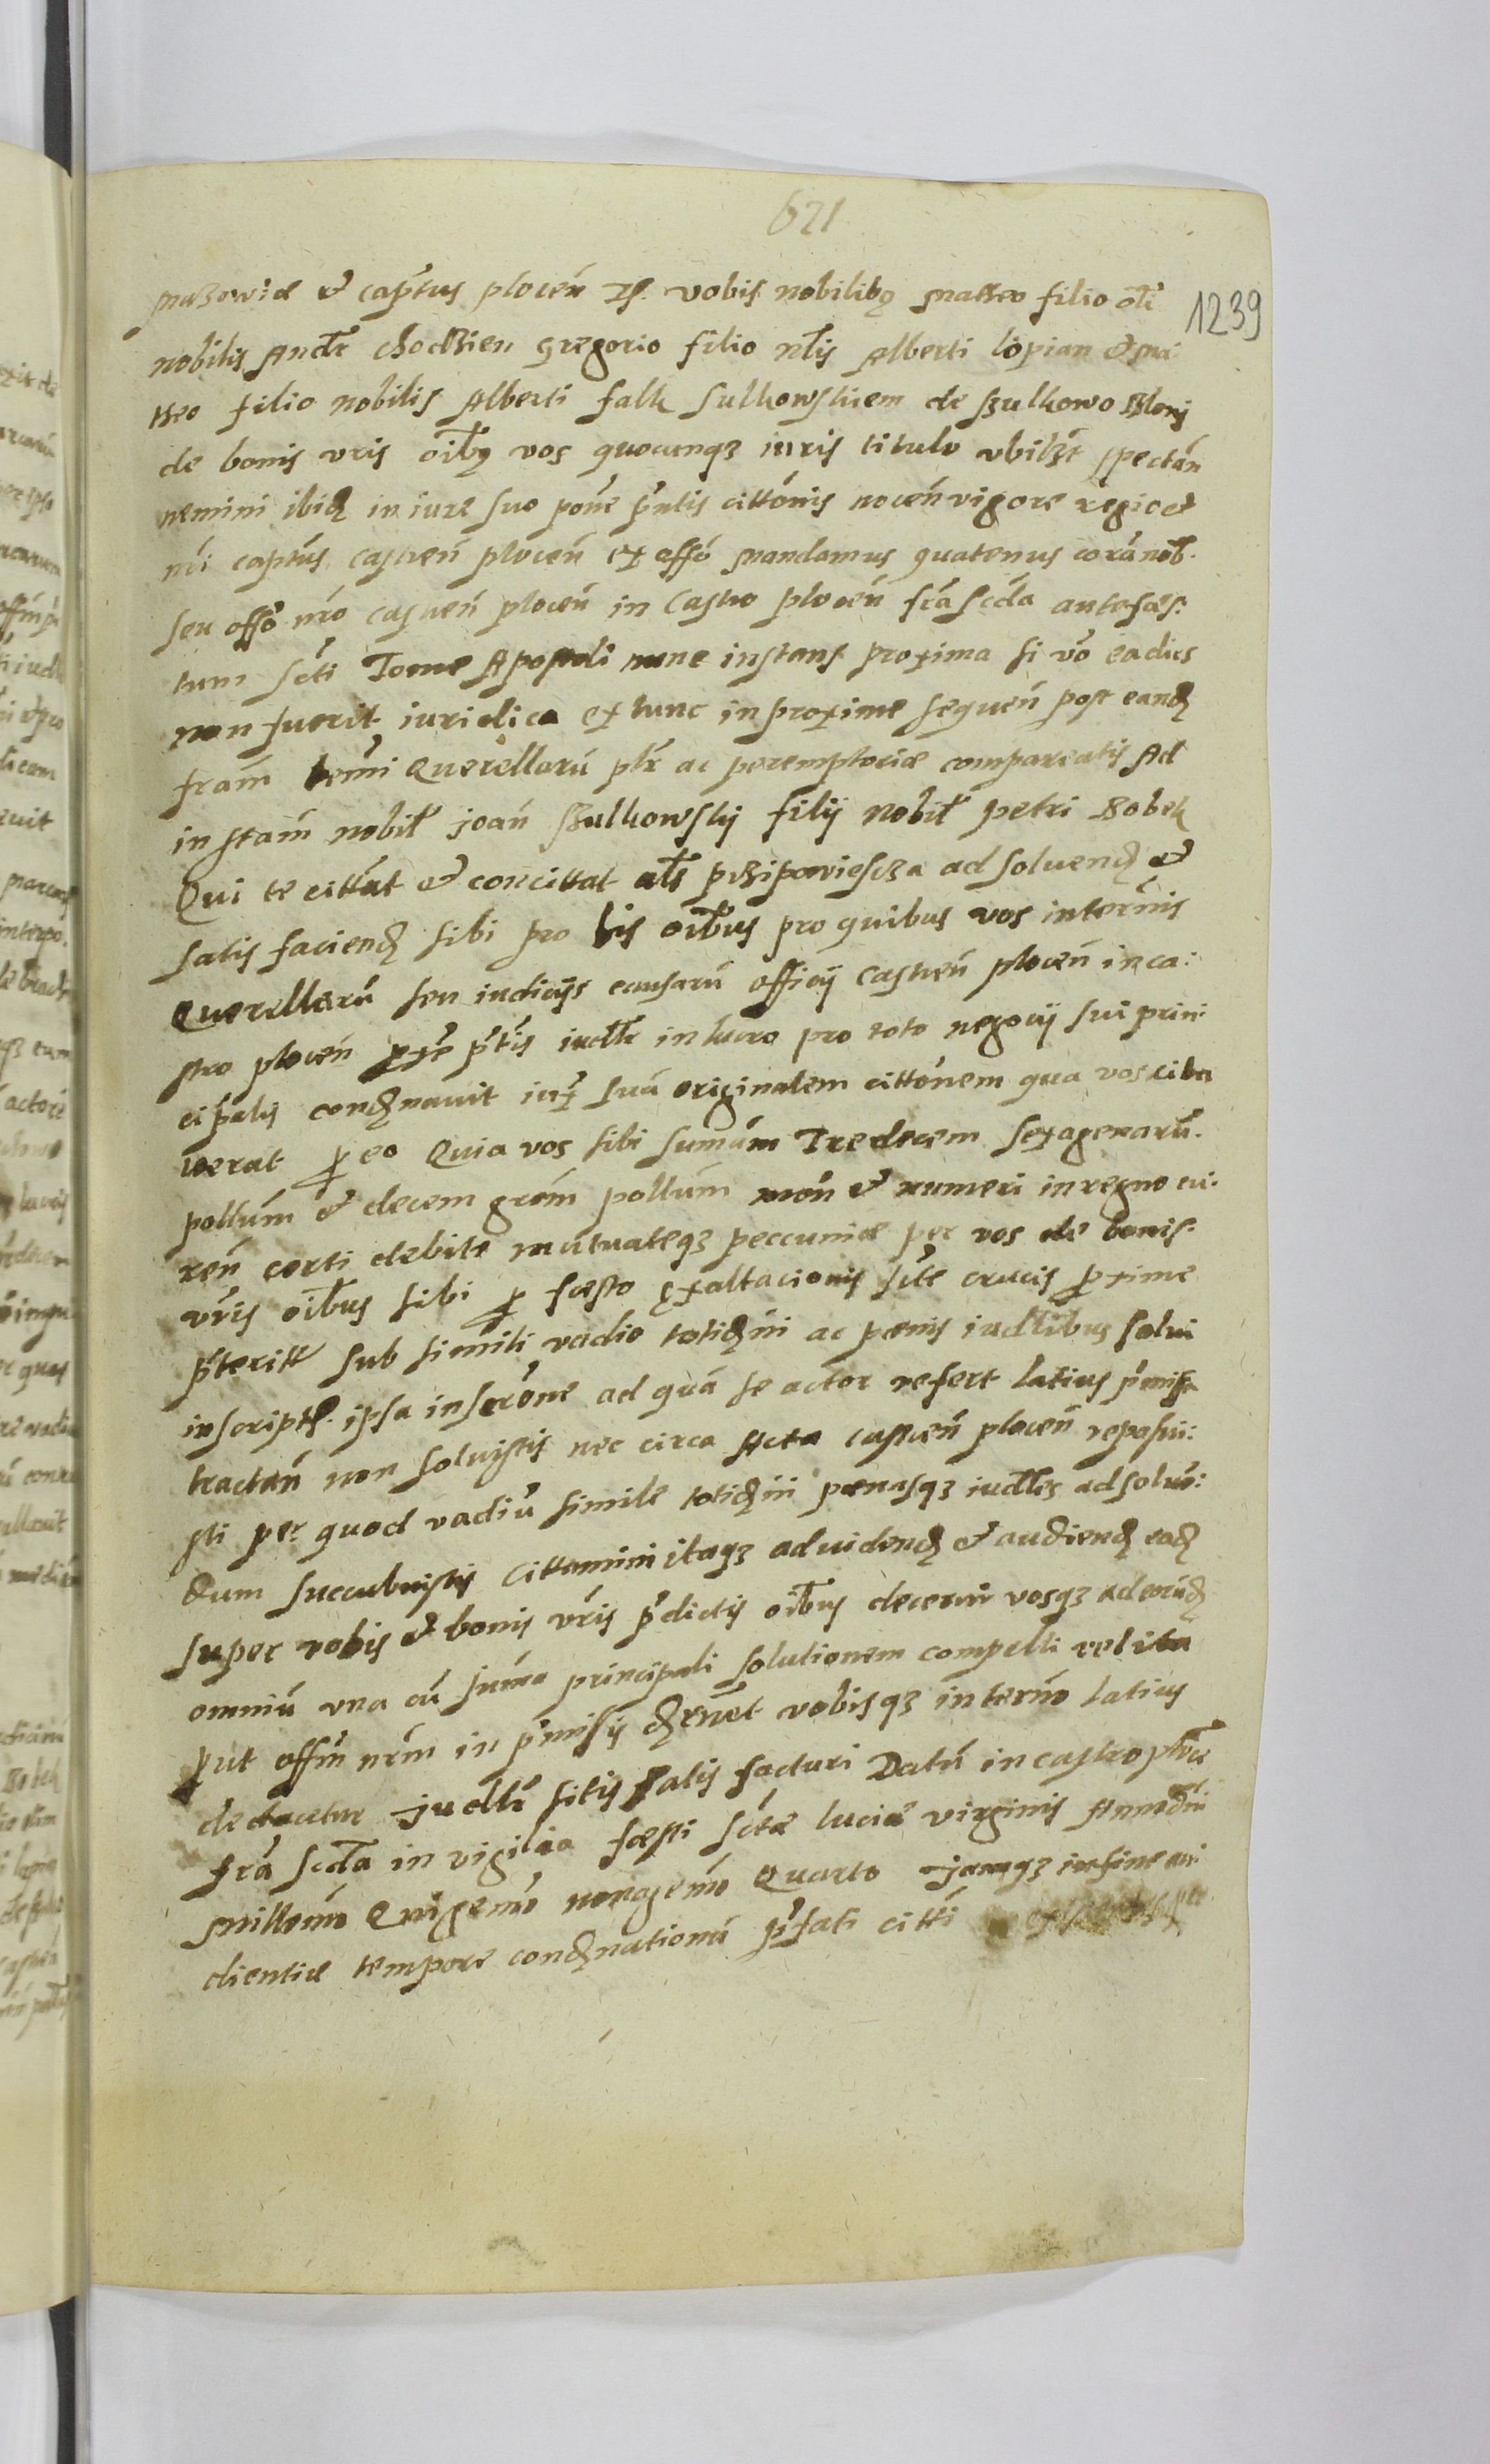 621
1239
mazowiæ et captus plocen̄ rs. vobis nobilibꝫ Matheo filio oli
nobilis Andr̄ chodzien gregorio filio nlis Alberti lopian et Ma:
theo filio nobilis Alberti falk sulkowskiem de szulkowo
de bonis vris oibꝫ vos quocunqꝫ iuris titulo vbilꝫt spectan̄
nemini ibid in iure suo pone pn̄tis cittōnis nocen̄ vigore regio et
nr̄i captus castren̄ plocen̄ ex offō mandamus quatenus corā nob.
seu offō nrō castren̄ plocen̄ in Castro plocen̄ frā scda ante fæs:
tum scti Tome Apostoli nunc instans proxima si vō ea dies
non fuerit iuridica ex tunc in proxime sequen̄ post eand
fram̄ termi Querellarū ptr ac peremptoriæ compareatis Ad
instam̄ nobil joan̄ szulkowskij filij nobil petri Bobek
Qui te cittat et concittat als przipowiescza ad soluend et
satis faciend sibi pro his oibus pro quibus vos in termis
Querellarū seu iudicijs causarū officij castren̄ plocen̄ in ca:
stro plocen̄ pte ptis iudlr in lucro pro toto negocij sui prin:
cipalis condnauit iuxt suā originalem cittōnem qua vos citta
uerat p eo Quia vos sibi sumām Tredecem sexagenarū
pollum̄ et decem grom̄ pollum̄ mon̄ et numeri in regno cu:
ren̄ certi debiti mutuateqꝫ peccuniæ per vos de bonis
vris oibus sibi p fæsto exaltacionis scte crucis pxime
pterit sub simili vadio totidm̄ ac pænis iudlibus solui
inscriptꝭ ipsa inscrōne ad quā se actor refert latius pmissa
tractan̄ non soluistis nec circa Acta castren̄ plocen̄ reposui:
sti per quod vadiū simile totidm̄ pænasqꝫ iudles ad soluē:
dum succubuistis Cittamini itaqꝫ ad uidend et audiend ead
super vobis et bonis vris pdictis oibus decerni vosqꝫ ad eorūd
omniū vna cū suma principali solutionem compelli vel ita
put offm̄ nrm̄ in pmissis dernet vobisqꝫ in termo latius
deducetur judllr sitis satis facturi Datū in castro plocen̄
frā scda in vigilia fæsti sctæ luciæ virginis Anno dni
Millemo Quigemo nonagemo Quarto jamqꝫ in fine au:
dientiæ tempore condnationū pfati citti